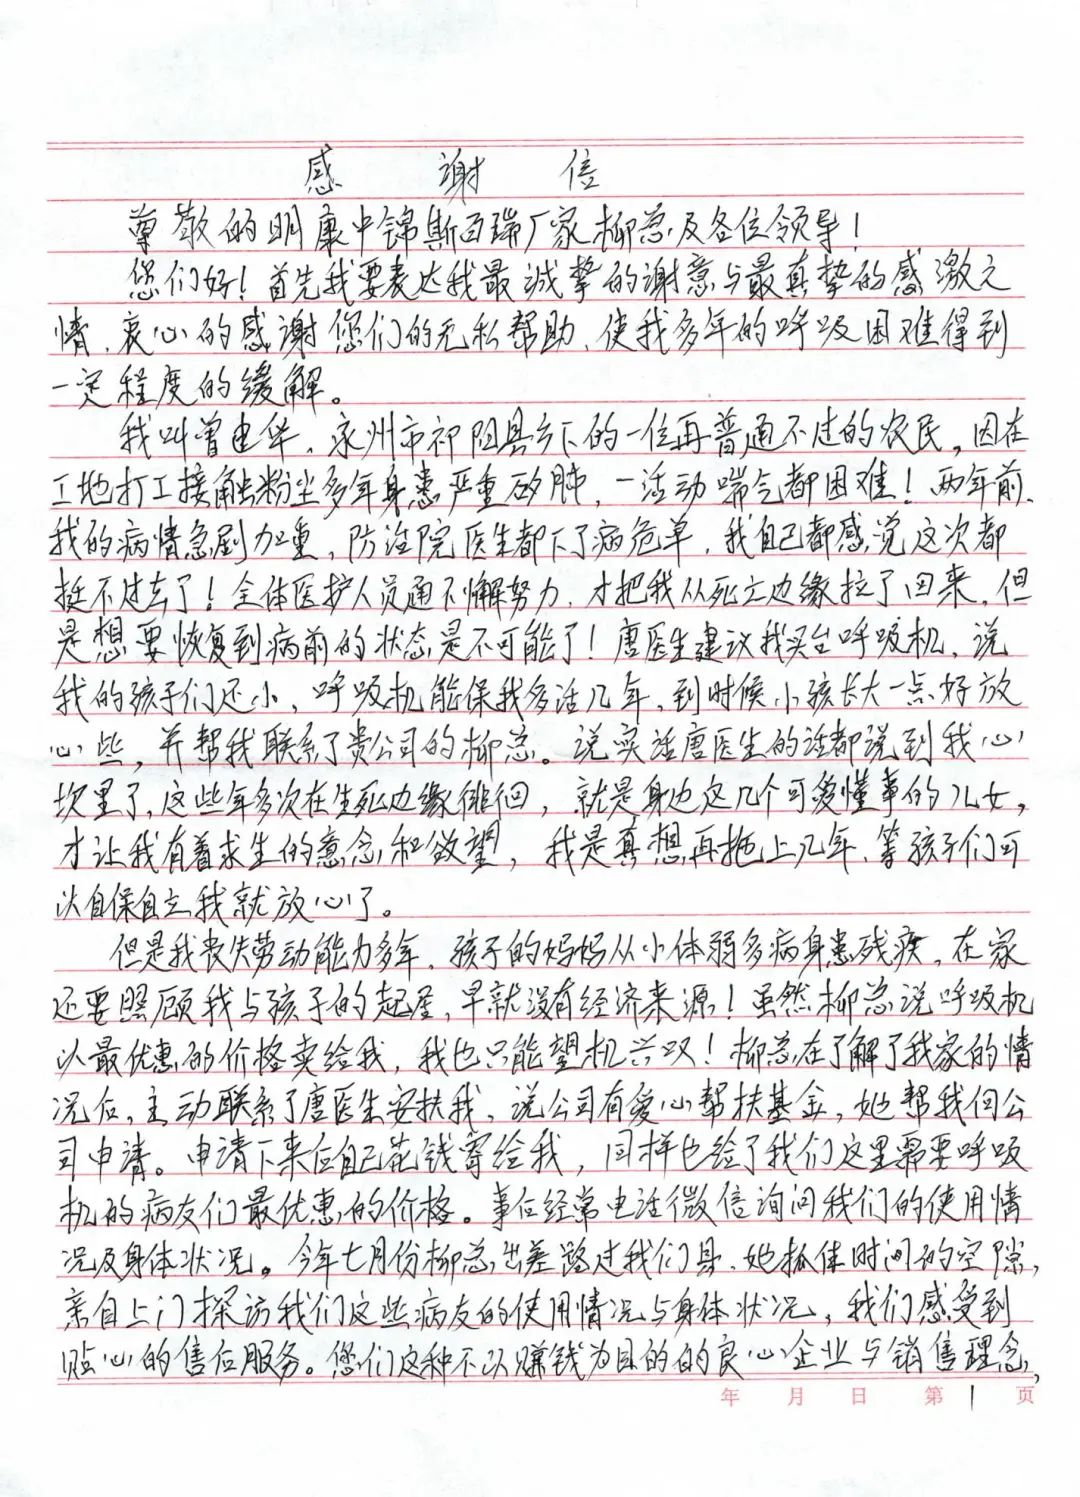 感 谢 信
尊敬的明康中锦斯百瑞厂家柳总及各位领导!
您们好!首先我要表达我最诚挚的谢意与最真挚的感激之
情,衷心的感谢您们的无私帮助,使我多年的呼吸困难得到
一定程度的缓解。
我叫曾建华,永州市祁阳县乡下的一位再普通不过的农民。因在
工地打工接触粉尘多年身患严重矽肺,一活动喘气都困难!两年前,
我的病情急剧加重,防治院医生都下了病危单,我自己都感觉这次都
挺不过去了!全体医护人员通不懈努力,才把我从死亡边缘拉了回来,但
是想要恢复到病前的状态是不可能了!唐医生建议我买台呼吸机,说
我的孩子们还小,呼吸机能保我多活几年,到时候小孩长大一点好放
心些,并帮我联系了贵公司的柳总。说实话唐医生的话都说到我心
坎里了,这些年多次在生死边缘徘徊,就是身边这几个可爱懂事的儿女,
才让我有着求生的意念和欲望,我是真想再拖上几年,等孩子们可
以自保自立我就放心了。
但是我丧失劳动能力多年,孩子的妈妈从小体弱多病身患残疾,在家
还要照顾我与孩子的起居,早就没有经济来源!虽然柳总说呼吸机
以最优惠的价格卖给我,我也只能望机兴叹!柳总在了解了我家的情
况后,主动联系了唐医生安抚我,说公司有爱心帮扶基金,她帮我向公
司申请。申请下来后自己花钱寄给我,同样也给了我们这里需要呼吸
机的病友们最优惠的价格。事后经常电话微信询问我们的使用情
况及身体状况。今年七月份柳总出差路过我们县,她抓住时间的空隙,
亲自上门探访我们这些病友的使用情况与身体状况,我们感受到
贴心的售后服务。您们这种不以赚钱为目的的良心企业与销售理念,
年 月 日 第 1 页